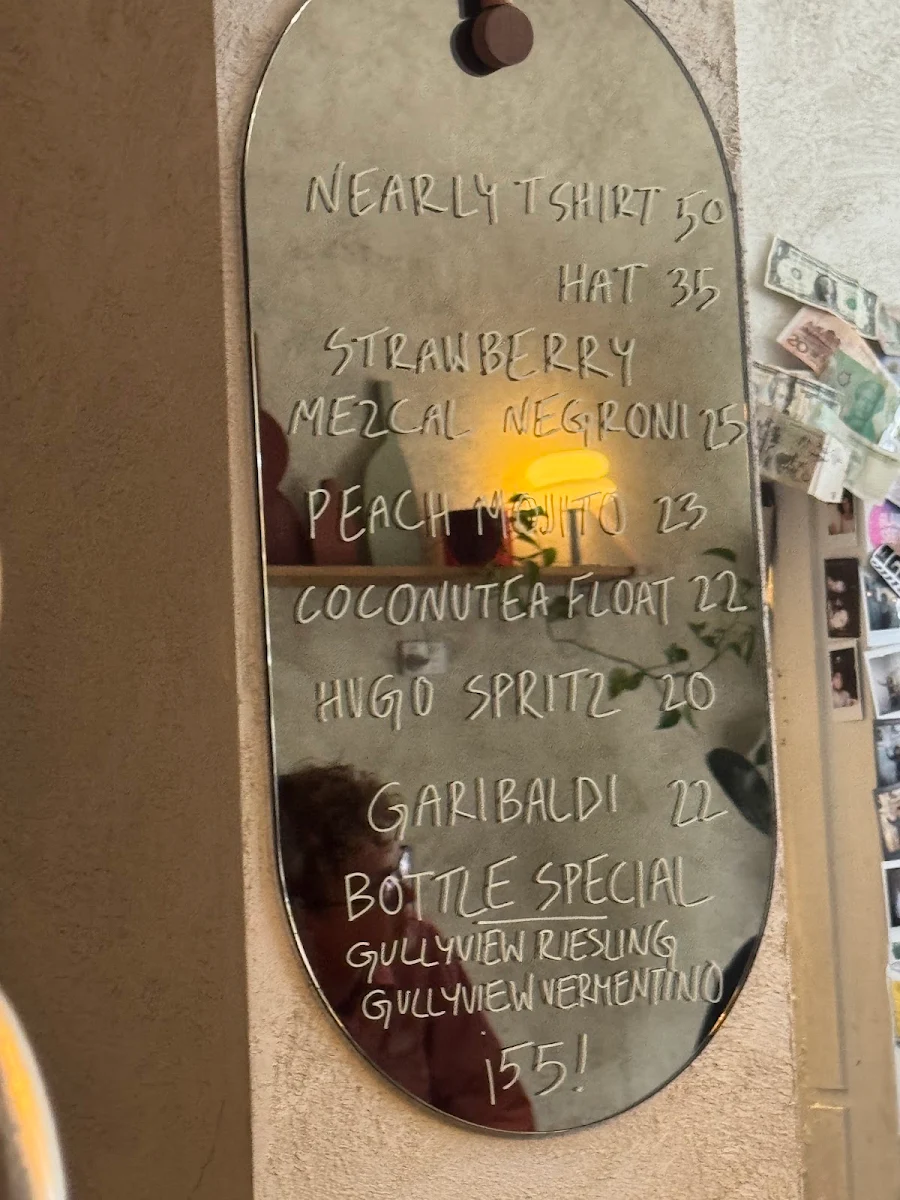 NEARLY T SHIRT 50
HAT 35
STRAWBERRY
MEZCAL NEGRONI 25
PEACH MOJITO 23
COCONUTEA FLOAT 22
HUGO SPRITZ 20
GARIBALDI 22
BOTTLE SPECIAL
GULLYVIEW RIESLING
GULLYVIEW VERMENTINO
¡55!